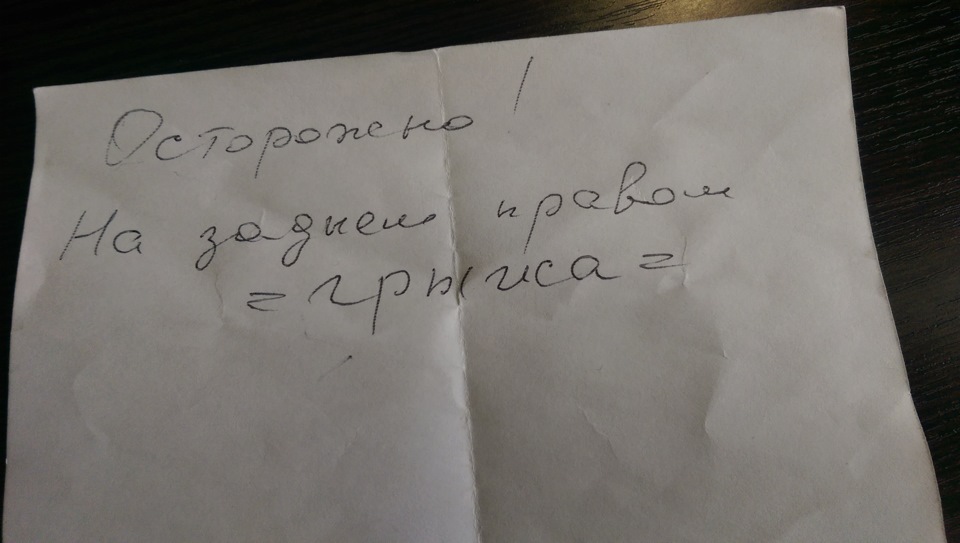 Осторожно!
На заднем правом
= грыжа =